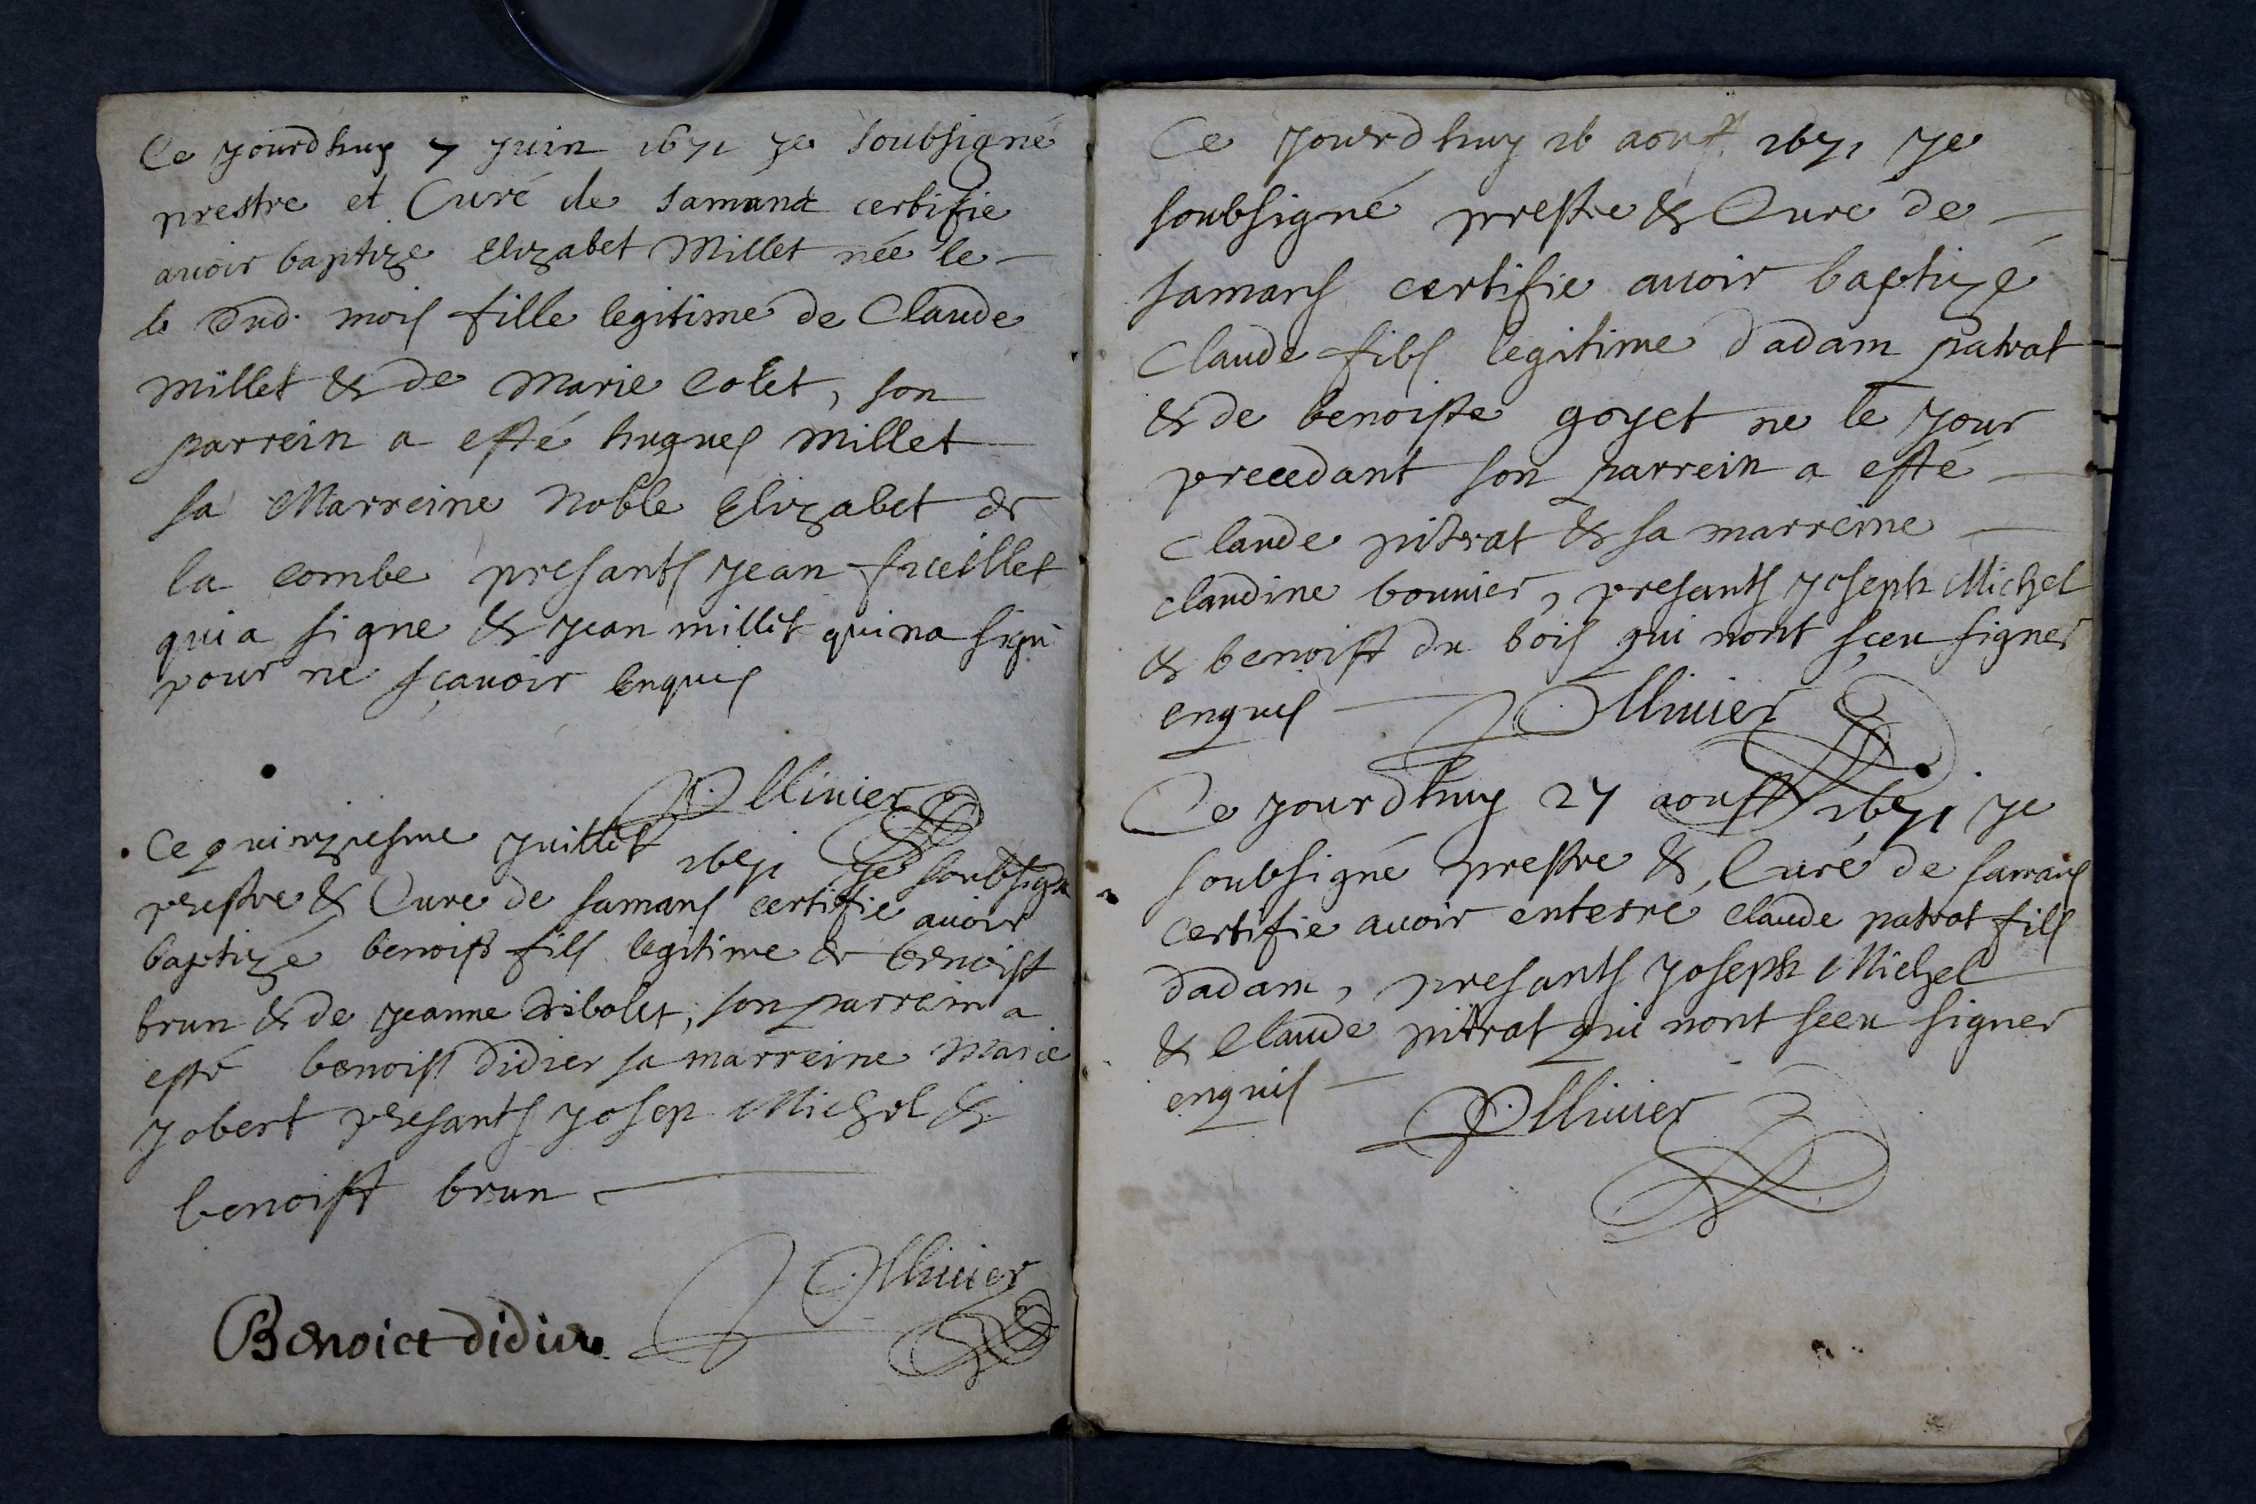 Ce jourdhuy 7 juin 1671 je soubsigné
prestre et Curé de samans certifie
avoir baptize Elizabet Millet née le
6 dud. mois fille legitime de Claude
Millet & de Marie Colet, son
parrein a esté hugues Millet
sa Marreine Noble Elizabet de
la Combe presants jean fueillet
qui a signe & jean millet qui na signé
pour ne sçavoir enquis
Ollivier
Ce quinziesme juillet 1671 je soubsigné
prestre & Curé de samans certifie avoir
baptizé benoist fils legitime de benoist
brun & de jeanne ; son parrein a
esté benoist didier sa marreine Marie
jobert presants josep Michel &
benoist brun
Ollivier
Benoict didier
Ce jourdhuy 16 aoust 1671 je
soubsigné prestre & Curé de
samans certifie avoir baptizé
Claude fils legitime dadam patrat
& de benoiste goyet ne le jour
precedant son parrein a esté
Claude pitrat & sa marreine
claudine bouvier, presants joseph Michel
& benoist du bois qui nont sçeu signer
enquis Ollivier
Ce jourdhuy 27 aoust 1671 je
soubsigné prestre & Curé de samans
certifie avoir enterré Claude patrat fils
dadam, presants joseph Michel
& Claude pitrat qui nont sceu signer
enquis
Ollivier